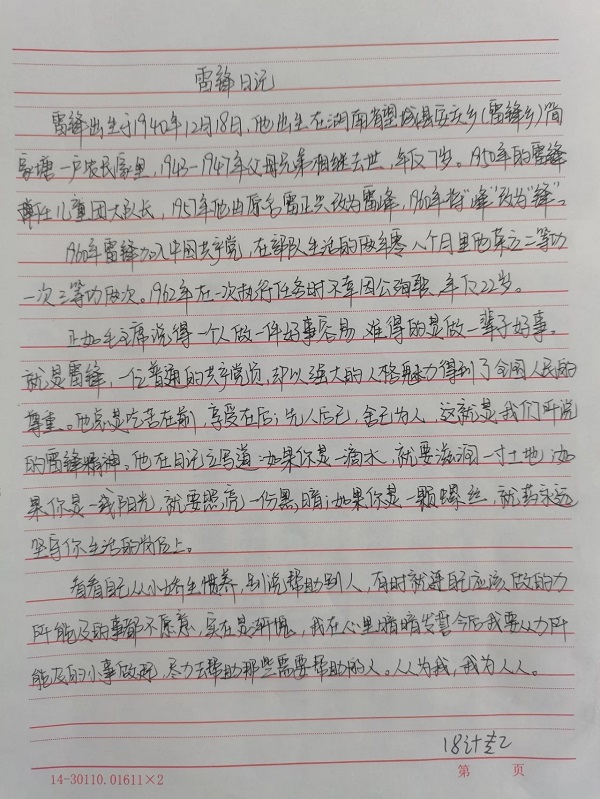 雷锋日记
雷锋出生于1940年12月18日,他出生在湖南省望城县安庆乡(雷锋乡)简
家塘一户农民家里,1943-1947年父母兄弟相继去世,年仅7岁。1950年的雷锋
任儿童团大队长,1957年他由原名雷正兴改为雷峰,1960年将“峰”改为“锋”。
1960年雷锋加入中国共产党,在部队生活的两年零八个月里他荣立二等功
一次三等功两次。1962年在一次执行任务时不幸因公殉职,年仅22岁。
正如毛主席说得一个人做一件好事容易,难得的是做一辈子好事。
就是雷锋,一位普通的共产党员,却以强大的人格魅力得到了全国人民的
尊重。他总是吃苦在前,享受在后;先人后己,舍己为人,这就是我们所说
的雷锋精神。他在日记立写道:如果你是一滴水,就要滋润一寸土地;如
果你是一线阳光,就要照亮一份黑暗;如果你是一颗螺丝,就要永远
坚守你生活的岗位上。
看看自己从小娇生惯养,别说帮助别人,有时就连自己应该做的力
所能及的事都不愿意,实在是渐愧,我在心里暗暗发誓今后我要从力所
能及的小事做起,尽力去帮助那些需要帮助的人。人人为我,我为人人。
18计
14-30110.01611×2
第 页